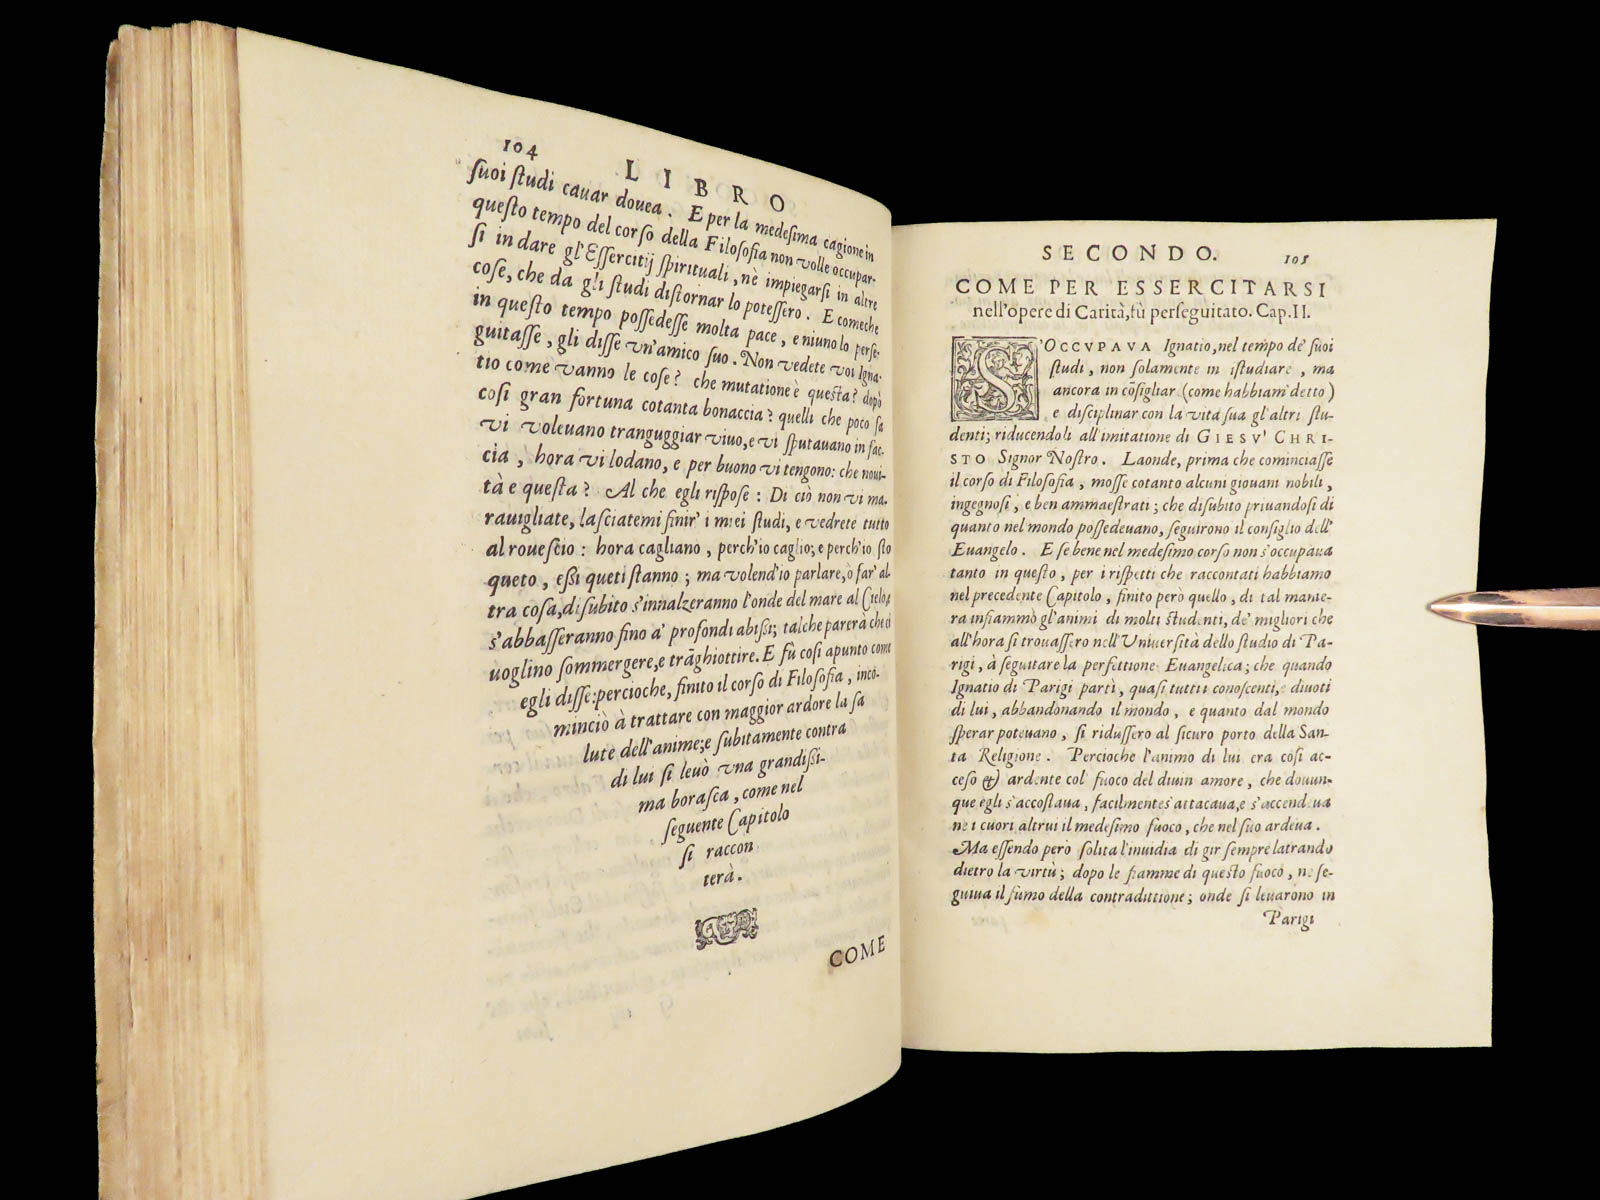 104
LIBRO
suoi studi cauar douea. E per la medesima cagione in
questo tempo del corso della Filosofia non volle occupar-
si in dare gl'Essercitij spirituali, nè impiegarsi in altre
cose, che da gli studi distornar lo potessero. E comeche
in questo tempo possedesse molta pace, e niuno lo perse-
guitasse, gli disse vn'amico suo. Non vedete voi Igna-
tio come vanno le cose? che mutatione è questa? dopò
cosi gran fortuna cotanta bonaccia? quelli che poco fa
vi voleuano tranguggiar viuo, e vi sputauano in fac-
cia, hora vi lodano, e per buono vi tengono: che noui-
tà e questa? Al che egli rispose: Di ciò non vi ma-
rauigliate, lasciatemi finir' i miei studi, e vedrete tutto
al rouescio: hora cagliano, perch'io caglio; e perch'io sto
queto, essi queti stanno; ma volend'io parlare, ò far' al-
tra cosa, di subito s'innalzeranno l'onde del mare al Cielo,
s'abbasseranno fino a' profondi abissi; talche parerà che ci
uoglino sommergere, e trāghiottire. E fù cosi apunto come
egli disse: percioche, finito il corso di Filosofia, inco-
minciò à trattare con maggior ardore la sa
lute dell'anime; e subitamente contra
di lui si leuò vna grandissi-
ma borasca, come nel
seguente Capitolo
si raccon
terà.
COME
SECONDO. 105
COME PER ESSERCITARSI
nell'opere di Carità, fù perseguitato. Cap. II.
S'OCCVPAVA Ignatio, nel tempo de' suoi
studi, non solamente in istudiare, ma
ancora in cōsigliar (come habbiam detto)
e disciplinar con la vita sua gl'altri stu-
denti; riducendoli all'imitatione di GIESV' CHRI-
STO Signor Nostro. Laonde, prima che cominciasse
il corso di Filosofia, mosse cotanto alcuni giouani nobili,
ingegnosi, e ben ammaestrati; che disubito priuandosi di
quanto nel mondo possedeuano, seguirono il consiglio dell'
Euangelo. E se bene nel medesimo corso non s'occupaua
tanto in questo, per i rispetti che raccontati habbiamo
nel precedente Capitolo, finito però quello, di tal manie-
ra infiammò gl'animi di molti studenti, de' migliori che
all'hora si trouassero nell'Vniuersità dello studio di Pa-
rigi, à seguitare la perfettione Euangelica; che quando
Ignatio di Parigi partì, quasi tutti i conoscenti, e diuoti
di lui, abbandonando il mondo, e quanto dal mondo
sperar poteuano, si ridussero al sicuro porto della San-
ta Religione. Percioche l'animo di lui era cosi ac-
ceso & ardente col fuoco del diuin amore, che douun-
que egli s'accostaua, facilmente s'attacaua, e s'accendeua
ne i cuori altrui il medesimo fuoco, che nel suo ardeua.
Ma essendo però solita l'inuidia di gir sempre latrando
dietro la virtù; dopo le fiamme di questo fuoco, ne se-
guiua il fumo della contradittione; onde si leuarono in
Parigi